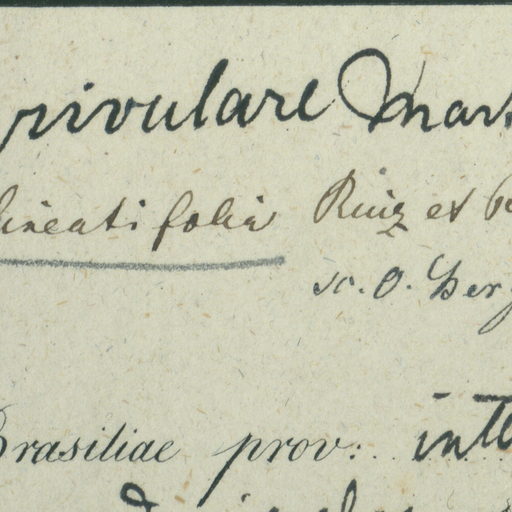 rivulare Mart
lineatifolia Ruiz et P
sc. O. Berg
Brasiliae prov: int